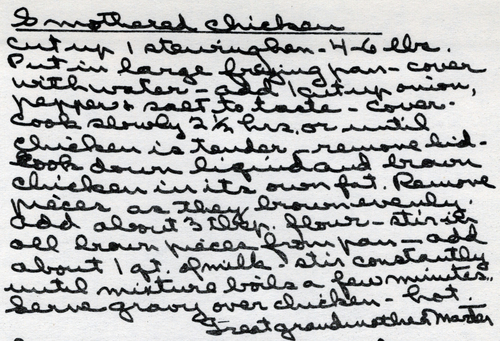 Smothered chicken
Cut up 1 stewing hen - 4-6 lbs.
Put in large frying pan - cover
with water - add 1 cut up onion,
pepper & salt to taste - cover.
Cook slowly 2 1/2 hrs. or until
chicken is tender - remove lid -
Cook down liquid and brown
chicken in its own fat. Remove
pieces as they brown evenly.
Add about 3 tbsp. flour - stir in
all brown pieces from pan - add
about 1 qt. of milk - stir constantly
until mixture boils a few minutes.
Serve gravy over chicken - hot.
Great grandmother